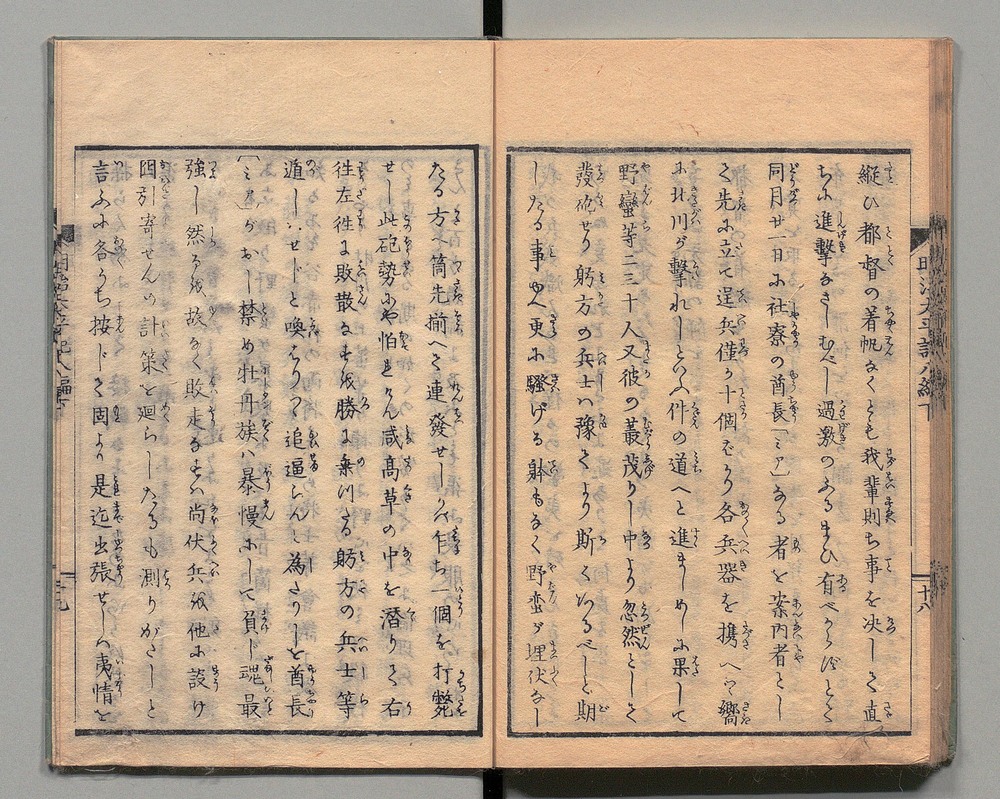 縦ひ都督の着帆なくとも我輩則ち事を决して直
ちに進撃なさしむべし過激のふるまひ有べからずとて
同月廿一日に社寮の酋長「ミア」なる者を案内者とし
て先に立て逞兵僅か十個ばかり各兵器を携へて嚮
に北川が撃れしといふ件の道へと進ましめしに果して
野蠻等二三十人又彼の叢茂りし中より忽然として
発砲せり躬方の兵士ハ豫てより斯くあるべしと期
したる事ゆへ更に騒げる躰もなく野蛮が埋伏なし
たる方へ筒先揃へて連發せしかバ乍ち一個を打斃
せし此砲勢にや怕れけん咸高草の中を潜りて右
往左往に敗散なすを勝に乗じたる躬方の兵士等
遁しハせじと喚はりつゝ追逼らんと為たりしを酋長
「ミア」がおし禁め牡丹族ハ暴慢にして負じ魂最
強し然るを故なく敗走なすハ尚伏兵を他に設け
囮引寄せんの計策を廻らしたるも測りがたしと
言ふに各うち按じて固より是迄出張せしハ夷情を
明治太平記八編下
十八
十九